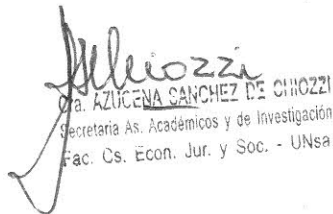 Achiozzi
Cra. AZUCENA SANCHEZ DE CHIOZZI
Secretaria As. Académicos y de Investigación
Fac. Cs. Econ. Jur. y Soc. - UNsa